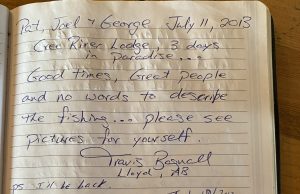 Pat, Joel & George July 11, 2013
Cree River Lodge, 3 days
in paradise...
Good times, Great people
and no words to describe
the fishing... please see
pictures for yourself.
Travis
Lloyd, AB
ps. I'll be back.